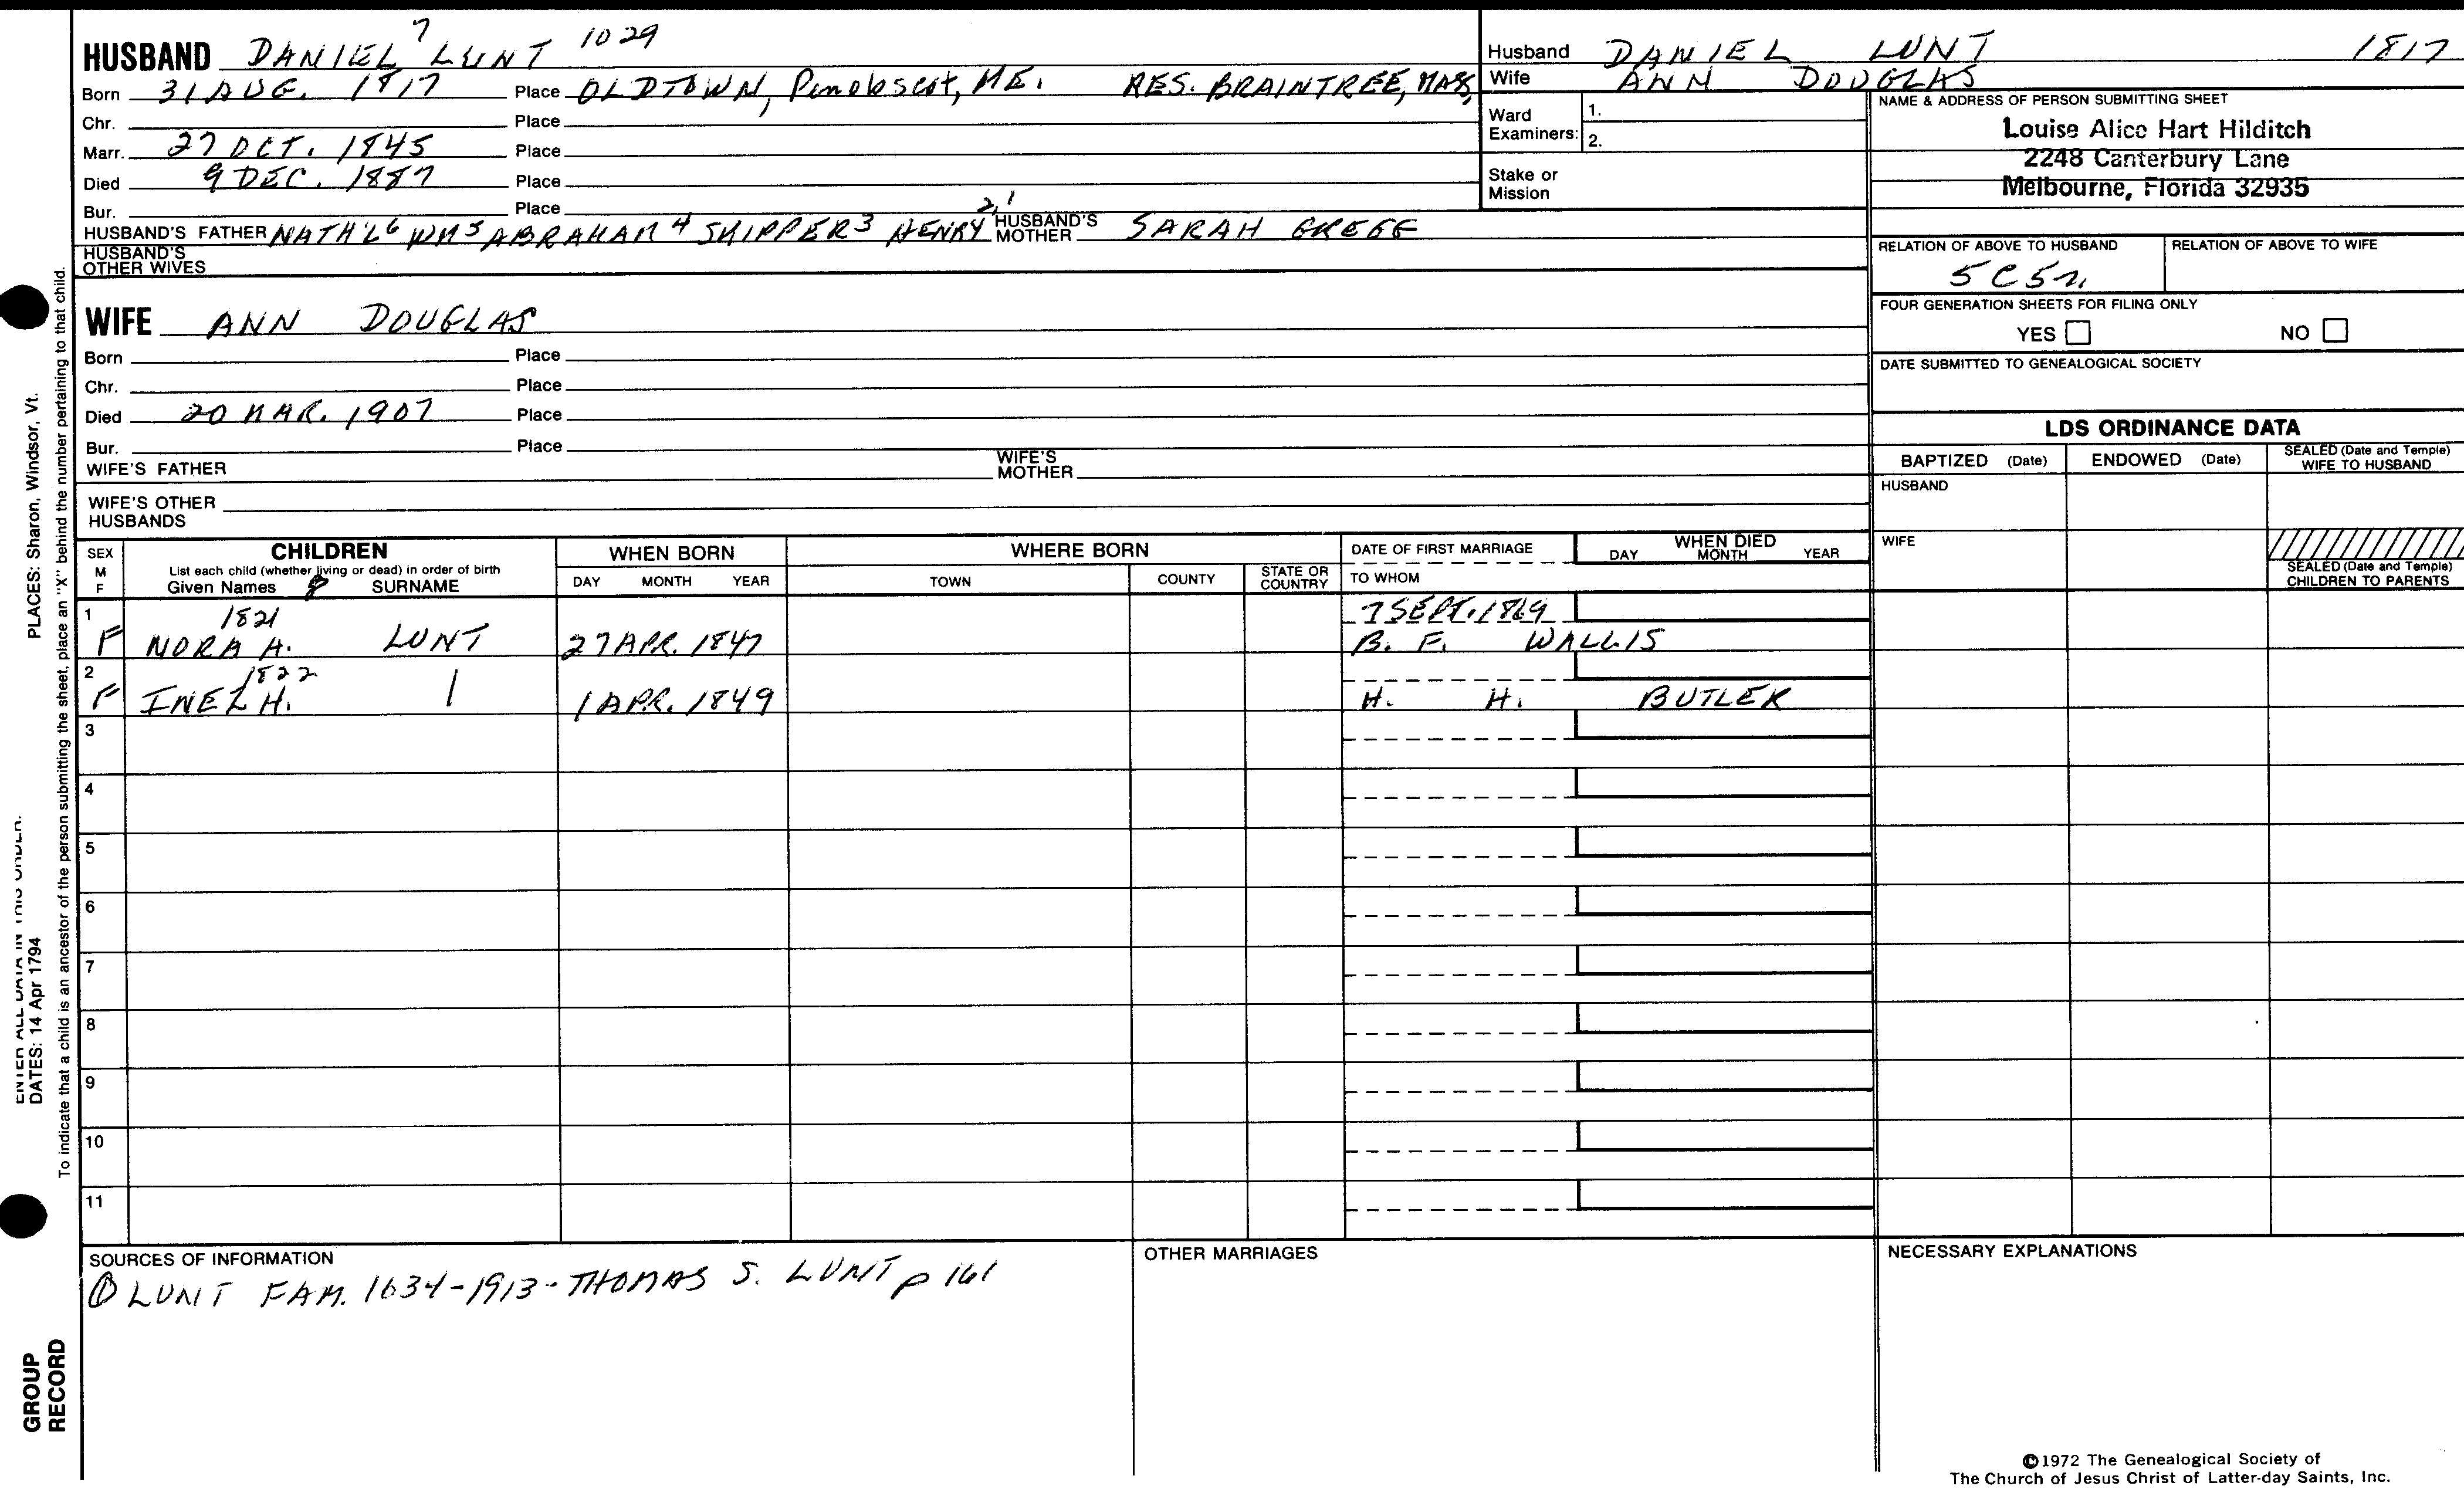 HUSBAND DANIEL⁷ LUNT 1029
Born 31 AUG. 1817 Place OLDTOWN, Penobscot, ME. RES. BRAINTREE, MASS,
Chr. Place
Marr. 27 OCT. 1845 Place
Died 9 DEC. 1887 Place
Bur. Place
HUSBAND'S FATHER NATH'L⁶ WM⁵ ABRAHAM⁴ SKIPPER³ HENRY²,¹ HUSBAND'S MOTHER SARAH GREGG
HUSBAND'S OTHER WIVES
Husband DANIEL LUNT 1817
Wife ANN DOUGLAS
Ward Examiners: 1.
2.
Stake or Mission
NAME & ADDRESS OF PERSON SUBMITTING SHEET
Louise Alice Hart Hilditch
2248 Canterbury Lane
Melbourne, Florida 32935
RELATION OF ABOVE TO HUSBAND RELATION OF ABOVE TO WIFE
5C5r.
FOUR GENERATION SHEETS FOR FILING ONLY
YES NO
DATE SUBMITTED TO GENEALOGICAL SOCIETY
WIFE ANN DOUGLAS
Born Place
Chr. Place
Died 20 MAR. 1907 Place
Bur. Place
WIFE'S FATHER WIFE'S MOTHER
WIFE'S OTHER HUSBANDS
LDS ORDINANCE DATA
BAPTIZED (Date) ENDOWED (Date) SEALED (Date and Temple) WIFE TO HUSBAND
HUSBAND
WIFE
SEALED (Date and Temple) CHILDREN TO PARENTS
SEX M F
CHILDREN
List each child (whether living or dead) in order of birth
Given Names SURNAME
WHEN BORN
DAY MONTH YEAR
WHERE BORN
TOWN COUNTY STATE OR COUNTRY
DATE OF FIRST MARRIAGE
TO WHOM
WHEN DIED
DAY MONTH YEAR
1 1821 7 SEPT. 1869
F NORA A. LUNT 27 APR. 1847 B. F. WALLIS
2 1822
F INEZ H. 1 APR. 1849 H. H. BUTLER
3
4
5
6
7
8
9
10
11
SOURCES OF INFORMATION
① LUNT FAM. 1634-1913 - THOMAS S. LUNT p 161
OTHER MARRIAGES
NECESSARY EXPLANATIONS
©1972 The Genealogical Society of
The Church of Jesus Christ of Latter-day Saints, Inc.
PLACES: Sharon, Windsor, Vt.
ENTER ALL DATA IN THIS ORDER.
DATES: 14 Apr 1794
To indicate that a child is an ancestor of the person submitting the sheet, place an "X" behind the number pertaining to that child.
GROUP
RECORD